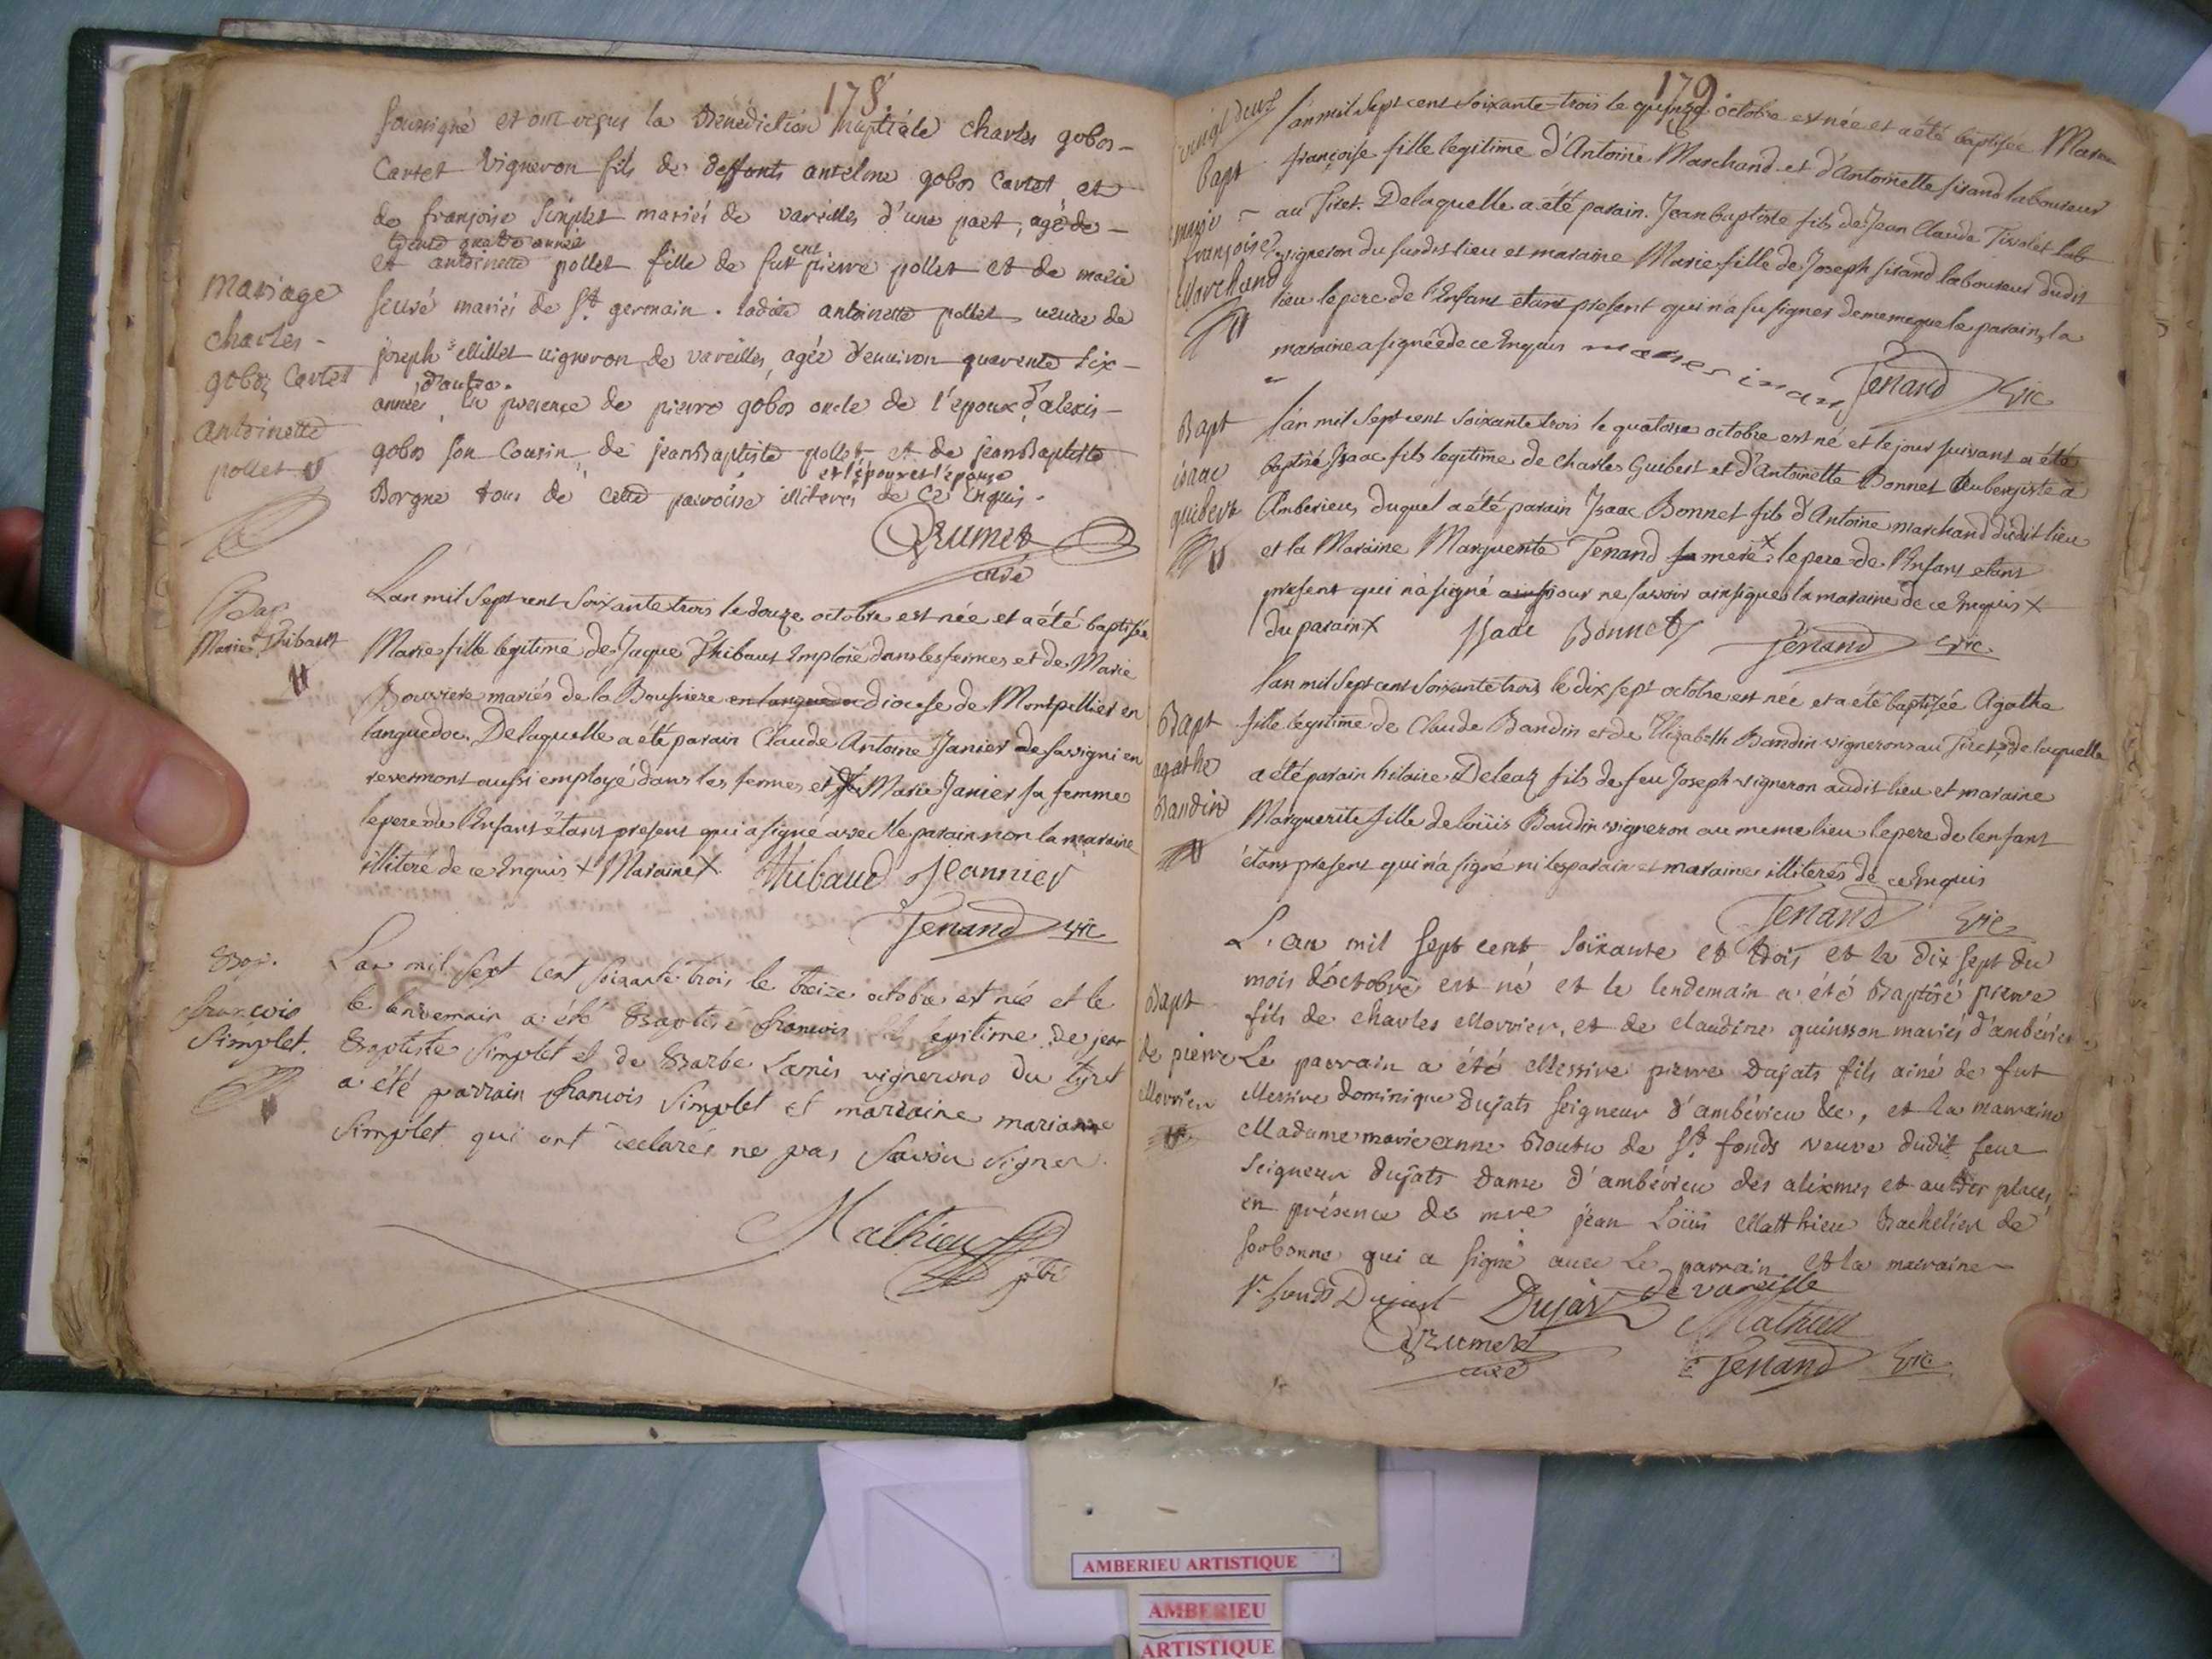 178.
soussigné et ont reçus la Bénédiction nuptiale charles gobos-
Cartet vigneron fils de deffunts antelme gobos Cartet et
de françoise simplet mariés de vareilles d'une part, agé de -
trente quatre années
et antoinette pollet fille de fut pierre pollet et de marie
mariés de St. germain. ladite antoinette pollet veuve de
joseph Millet vigneron de vareilles, agée d'environ quarente six -
d'autre.
années, en presence de pierre gobos oncle de l'epoux, d'alexis -
gobos son Cousin, de jeanBaptiste pollet et de jeanBaptiste
et l'époux et l'épouse
Borgne tous de cette parroisse illiterés de ce enquis.
curé
Mariage
charles -
goboz Cartet
antoinette
pollet
Bap.
Marie Thibaut
Lan mil sept cent soixante trois le douze octobre est née et a été baptisée
Marie fille legitime de Jaque Thibaut Emploié dans les fermes et de Marie
Bouviere mariés de la Boussiere en languedoc diocese de Montpellier en
languedoc. De laquelle a été parain Claude Antoine Janier de savigni en
revermont aussi employé dans les fermes et Marie Janier sa femme
le pere de l'Enfant étant present qui a signé avec le parain non la maraine
illiteré de ce Enquis + Maraine +
Thibaud Jeannier
Tenand vic
Bap.
françois
Simplet.
Lan mil sept cent soixante trois le treize octobre est née et le
le lendemain a été Baptisé francois fils légitime de jean
Baptiste Simplet et de Barbe Lamis vignerons du tiret
a été parrain francois Simplet et marraine marianne
Simplet qui ont declarés ne pas savoir signer.
Mathieu
ptre
179.
vingt deux
Bapt
marie -
françoise
Marchand
l'an mil sept cent soixante-trois le quinze octobre est née et a été baptisée Marie
françoise fille legitime d'Antoine Marchand et d'Antoinette sirand laboureur
au Tiret. De laquelle a été parain Jean baptiste fils de Jean Claude Tivolet lab
vigneron du susdit lieu et maraine Marie fille de Joseph sirand laboureur dudit
lieu le pere de l'Enfant etant present qui n'a su signer de meme que le parain, la
maraine a signée de ce Enquis marie sirand
Tenand vic
Bapt
isaac
guibert
l'an mil sept cent soixante trois le quatorze octobre est né et le jour suivant a été
baptisé Isaac fils legitime de charles Guibert et d'Antoinette Bonnet Aubergiste a
Amberieu, duquel a été parain Isaac Bonnet fils d'Antoine marchand dudit lieu
et la Maraine Marguerite Tenand sa mere x le pere de l'Enfant etant
present qui n'a signé pour ne savoir ainsi que la maraine de ce Enquis x
du parain x Isaac Bonnet Tenand vic.
Bapt
agathe
Baudin
l'an mil sept cent soixante trois le dix sept octobre est née et a été baptisée Agathe
fille legitime de Claude Baudin et de Elizabeth Baudin vignerons au Tiret, de laquelle
a été parain hilaire Deleaz fils de feu Joseph vigneron audit lieu et maraine
Marguerite fille de loüis Baudin vigneron au meme lieu le pere de lenfant
étant present qui n'a signé ni les parain et maraine illiterés de ce Enquis
Tenand vic
Bapt
de pierre
Morrieu
L'an mil sept cent soixante et trois et le dix sept du
mois d'octobre est né et le lendemain a été Baptisé pierre
fils de charles Morrier, et de claudine quinsson mariés d'ambérieu
Le parrain a été Messire pierre Dujats fils ainé de fut
Messire dominique Dujats seigneur d'ambérieu &c, et la marraine
Madame marieanne Boutu de St. fonds veuve dudit feu
seigneur Dujats Dame d'ambérieu des alixmes et autres places,
en présence de mre jean Loüis Matthieu Bachelier de
sorbonne qui a signé avec Le parrain et la marraine
St. fonds Dujast Dujas de vareille
Mathieu
curé
Tenand vic
AMBERIEU ARTISTIQUE
AMBERIEU
ARTISTIQUE